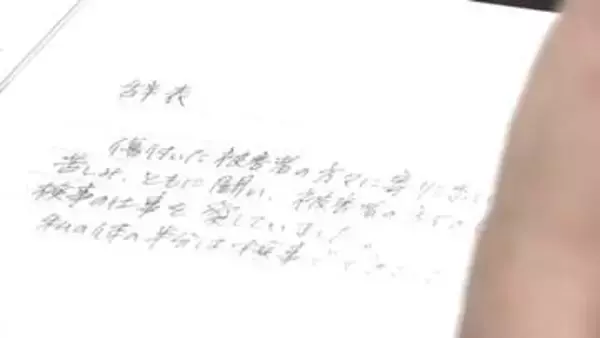 辞表
傷付いた被害者の方々に寄り
苦しみ、ともに闘い、被害者の
検事の仕事を愛していました
私の体の半分は検事